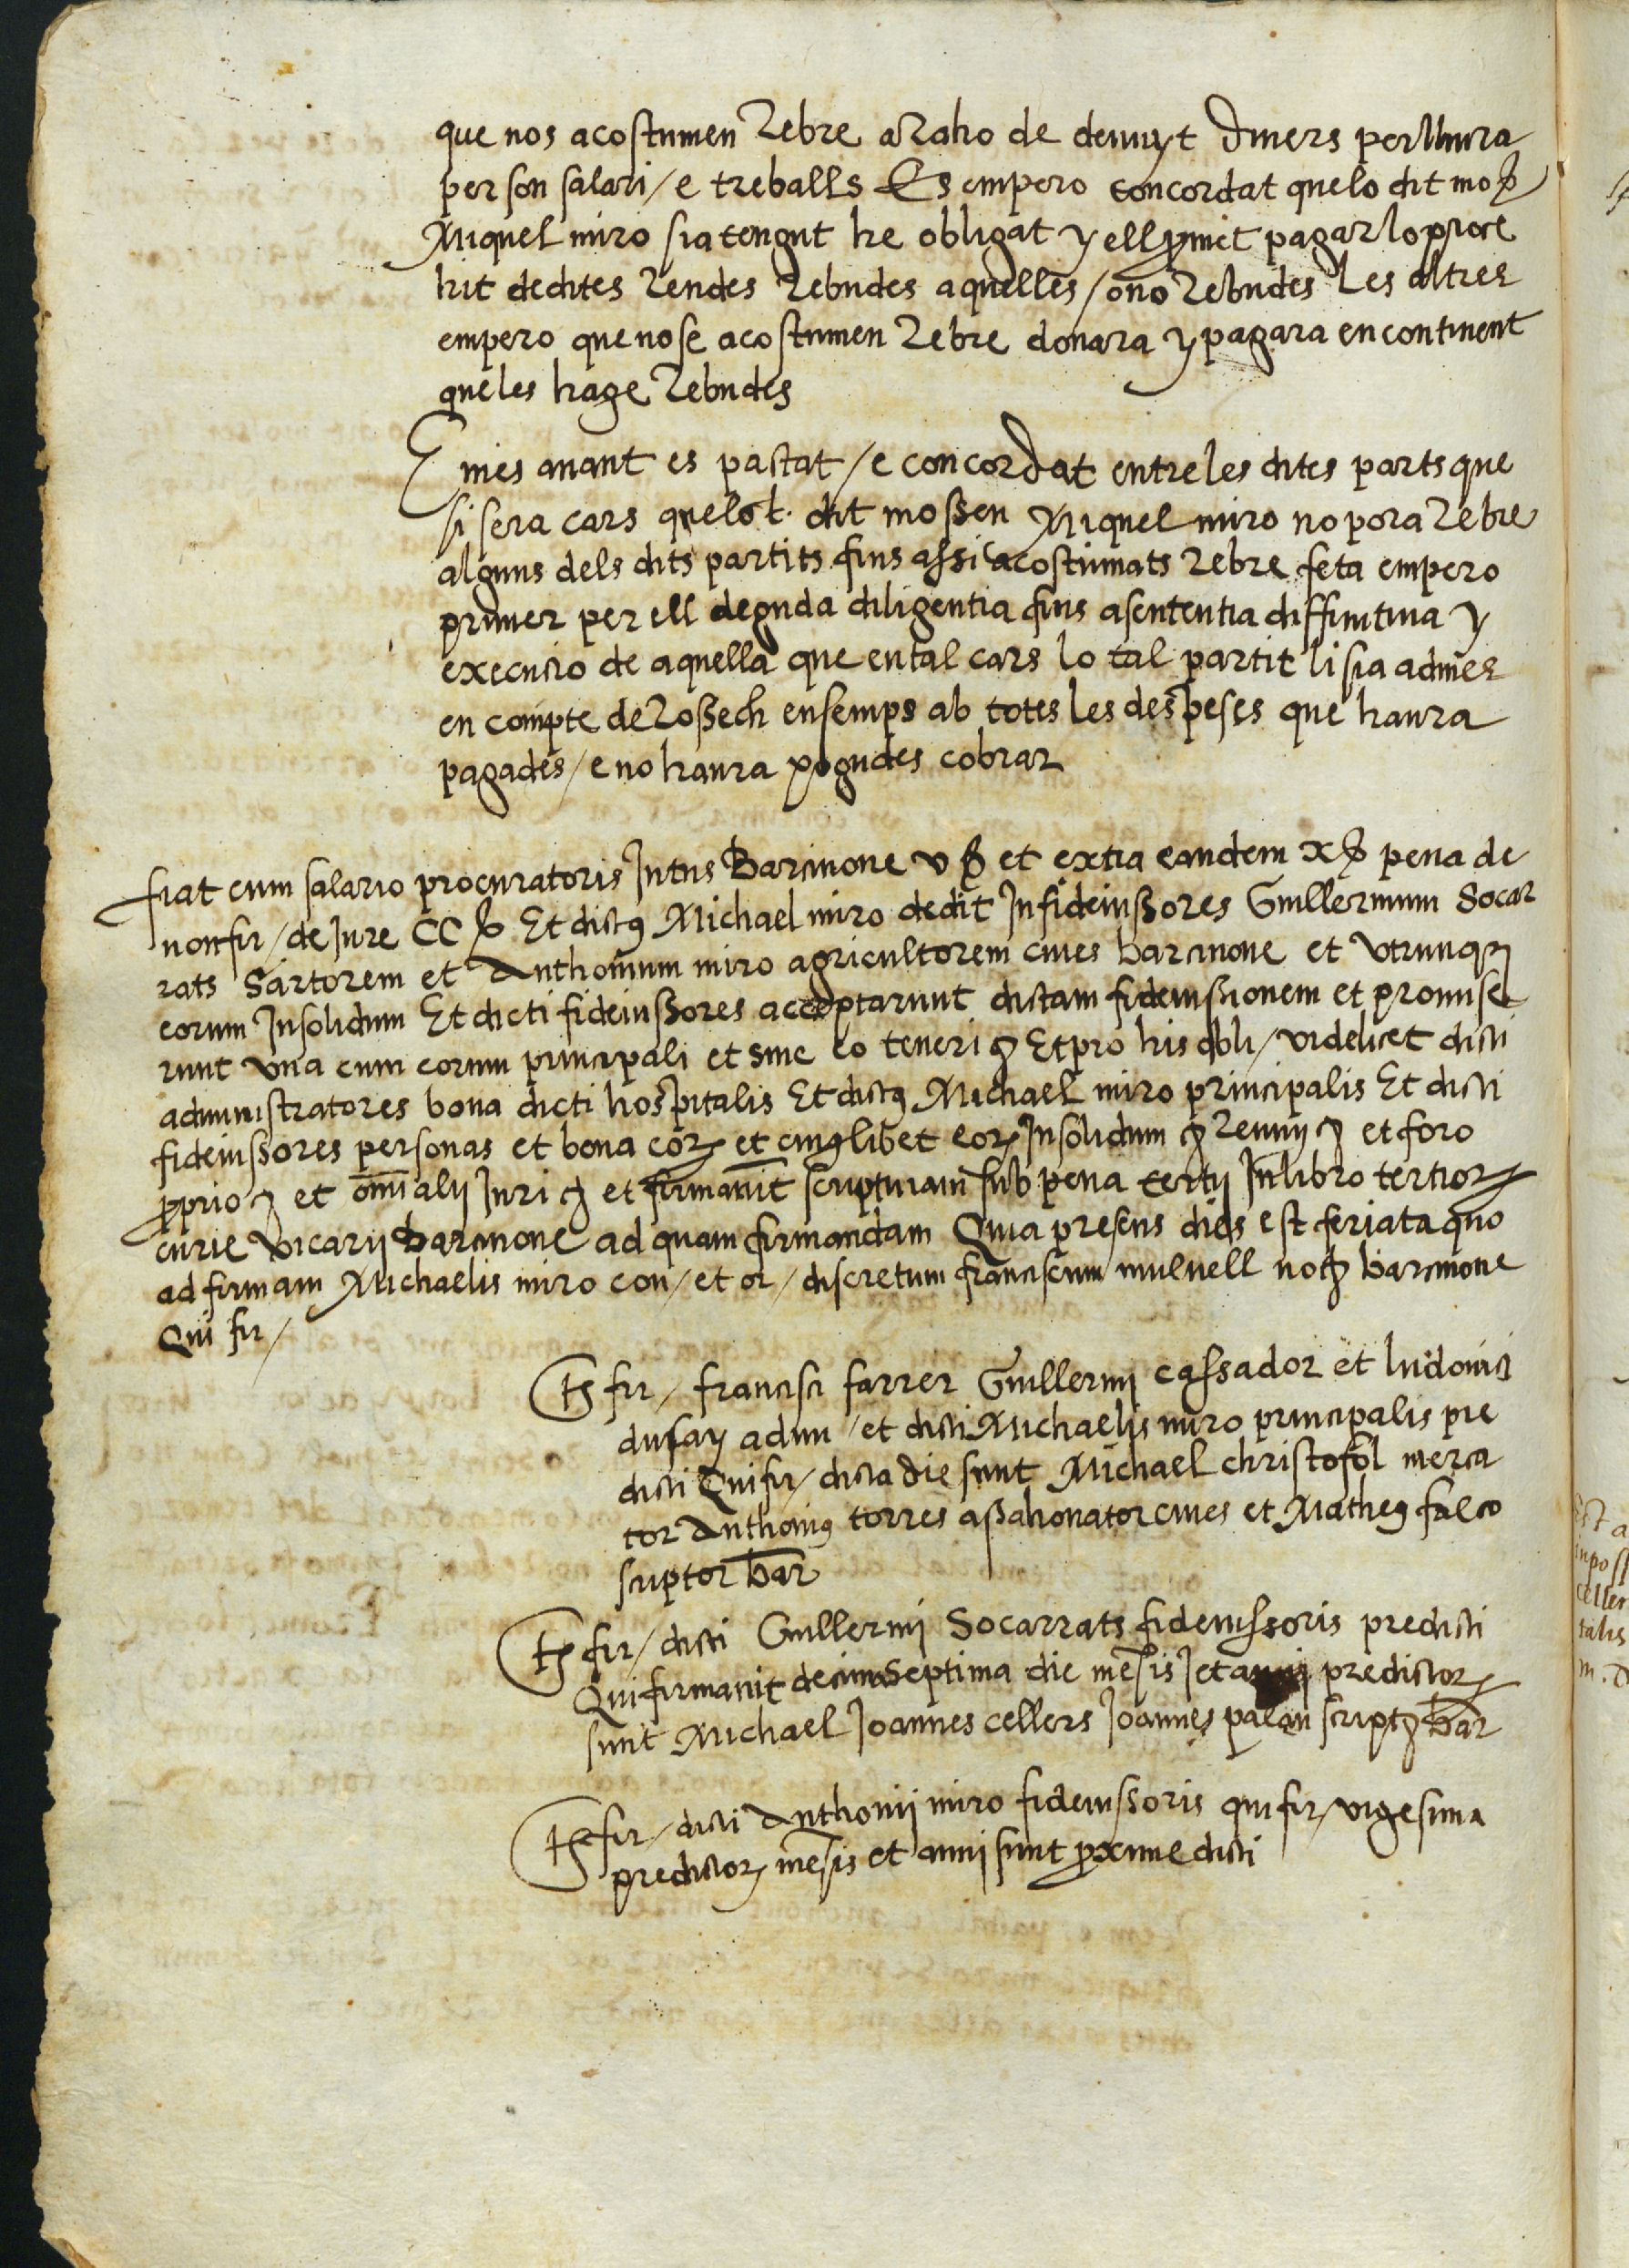 que nos acostumen rebre a raho de devuyt diners per lliura
per son salari / e treballs Es empero concordat que lo dit moß
Miquel miro sia tengut he obligat y ell pmet pagar lo proce
hit de dites rendes rebudes aquelles / o no rebudes Les altres
empero que no se acostumen rebre donara y pagara encontinent
que les hage rebudes
E mes avant es pactat / e concordat entre les dites parts que
si sera cars que lo t. dit mossen Miquel miro no pora rebre
alguns dels dits partits fins assi acostumats rebre feta empero
primer per ell deguda diligentia fins a sententia diffinitiva y
execucio de aquella que en tal cars lo tal partit li sia admes
en compte de rossech ensemps ab totes les despeses que haura
pagades / e no haura pogudes cobrar
fiat cum salario procuratoris Intus Barcinone v ß et extra eandem x ß pena de
non fir / de Jure CC ß Et dictus Michael miro dedit In fideiussores Guillermum Socar
rats Sartorem et Anthonium miro agricultorem cives barcinone et utrunqz
eorum Insolidum Et dicti fideiussores acceptarunt dictam fideiussionem et promise
runt una cum eorum principali et sine eo teneri &c Et pro his obli / videlicet dicti
administratores bona dicti hospitalis Et dictus Michael miro principalis Et dicti
fideiussores personas et bona eorz et cuiuslibet eorz Insolidum &c renuny &c et foro
pprio &c et omi alij Juri &c et firmavit scripturam sub pena tertij In libro tertiorz
curie vicarij barcinone ad quam firmandam Quia presens dies est feriata quo
ad firmam Michaelis miro con / et or / discretum franciscum mulnell notz barcinone
Qui fir /
ts fir / francisci farrer Guillermi cassador et ludovici
dusay admi / et dicti Michaelis miro principalis pre
dicti Qui fir / dicta die sunt Michael christofol merca
tor Anthonius torres assahonator cives et Matheus falco
scriptor bar
ts fir / dicti Guillermi Socarrats fideiussoris predicti
Qui firmavit decima Septima die mesis et anni predictorz
sunt Michael Joannes cellers Joannes palau scriptz bar
ts fir / dicti Anthonij miro fideiussoris qui fir / vigesima
predictorz mesis et anni sunt pxime dicti